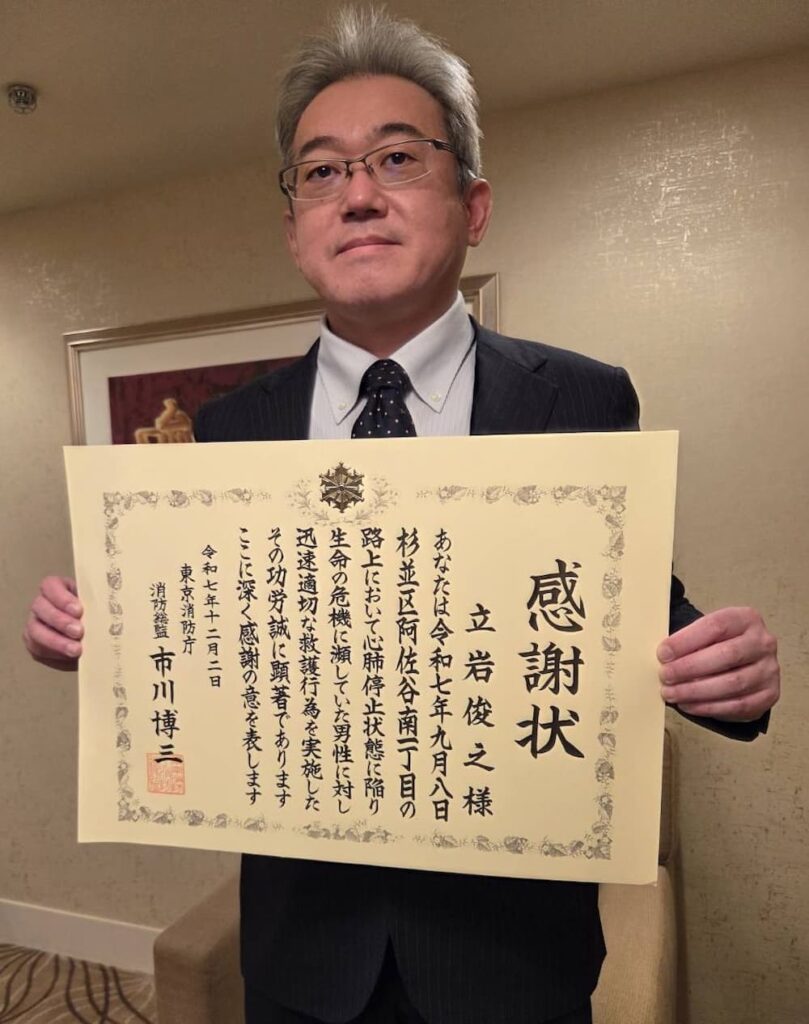 感謝状
立岩俊之様
あなたは令和七年九月八日
杉並区阿佐谷南一丁目の
路上において心肺停止状態に陥り
生命の危機に瀕していた男性に対し
迅速適切な救護行為を実施した
その功労誠に顕著であります
ここに深く感謝の意を表します
令和七年十二月二日
東京消防庁
消防総監 市川博三